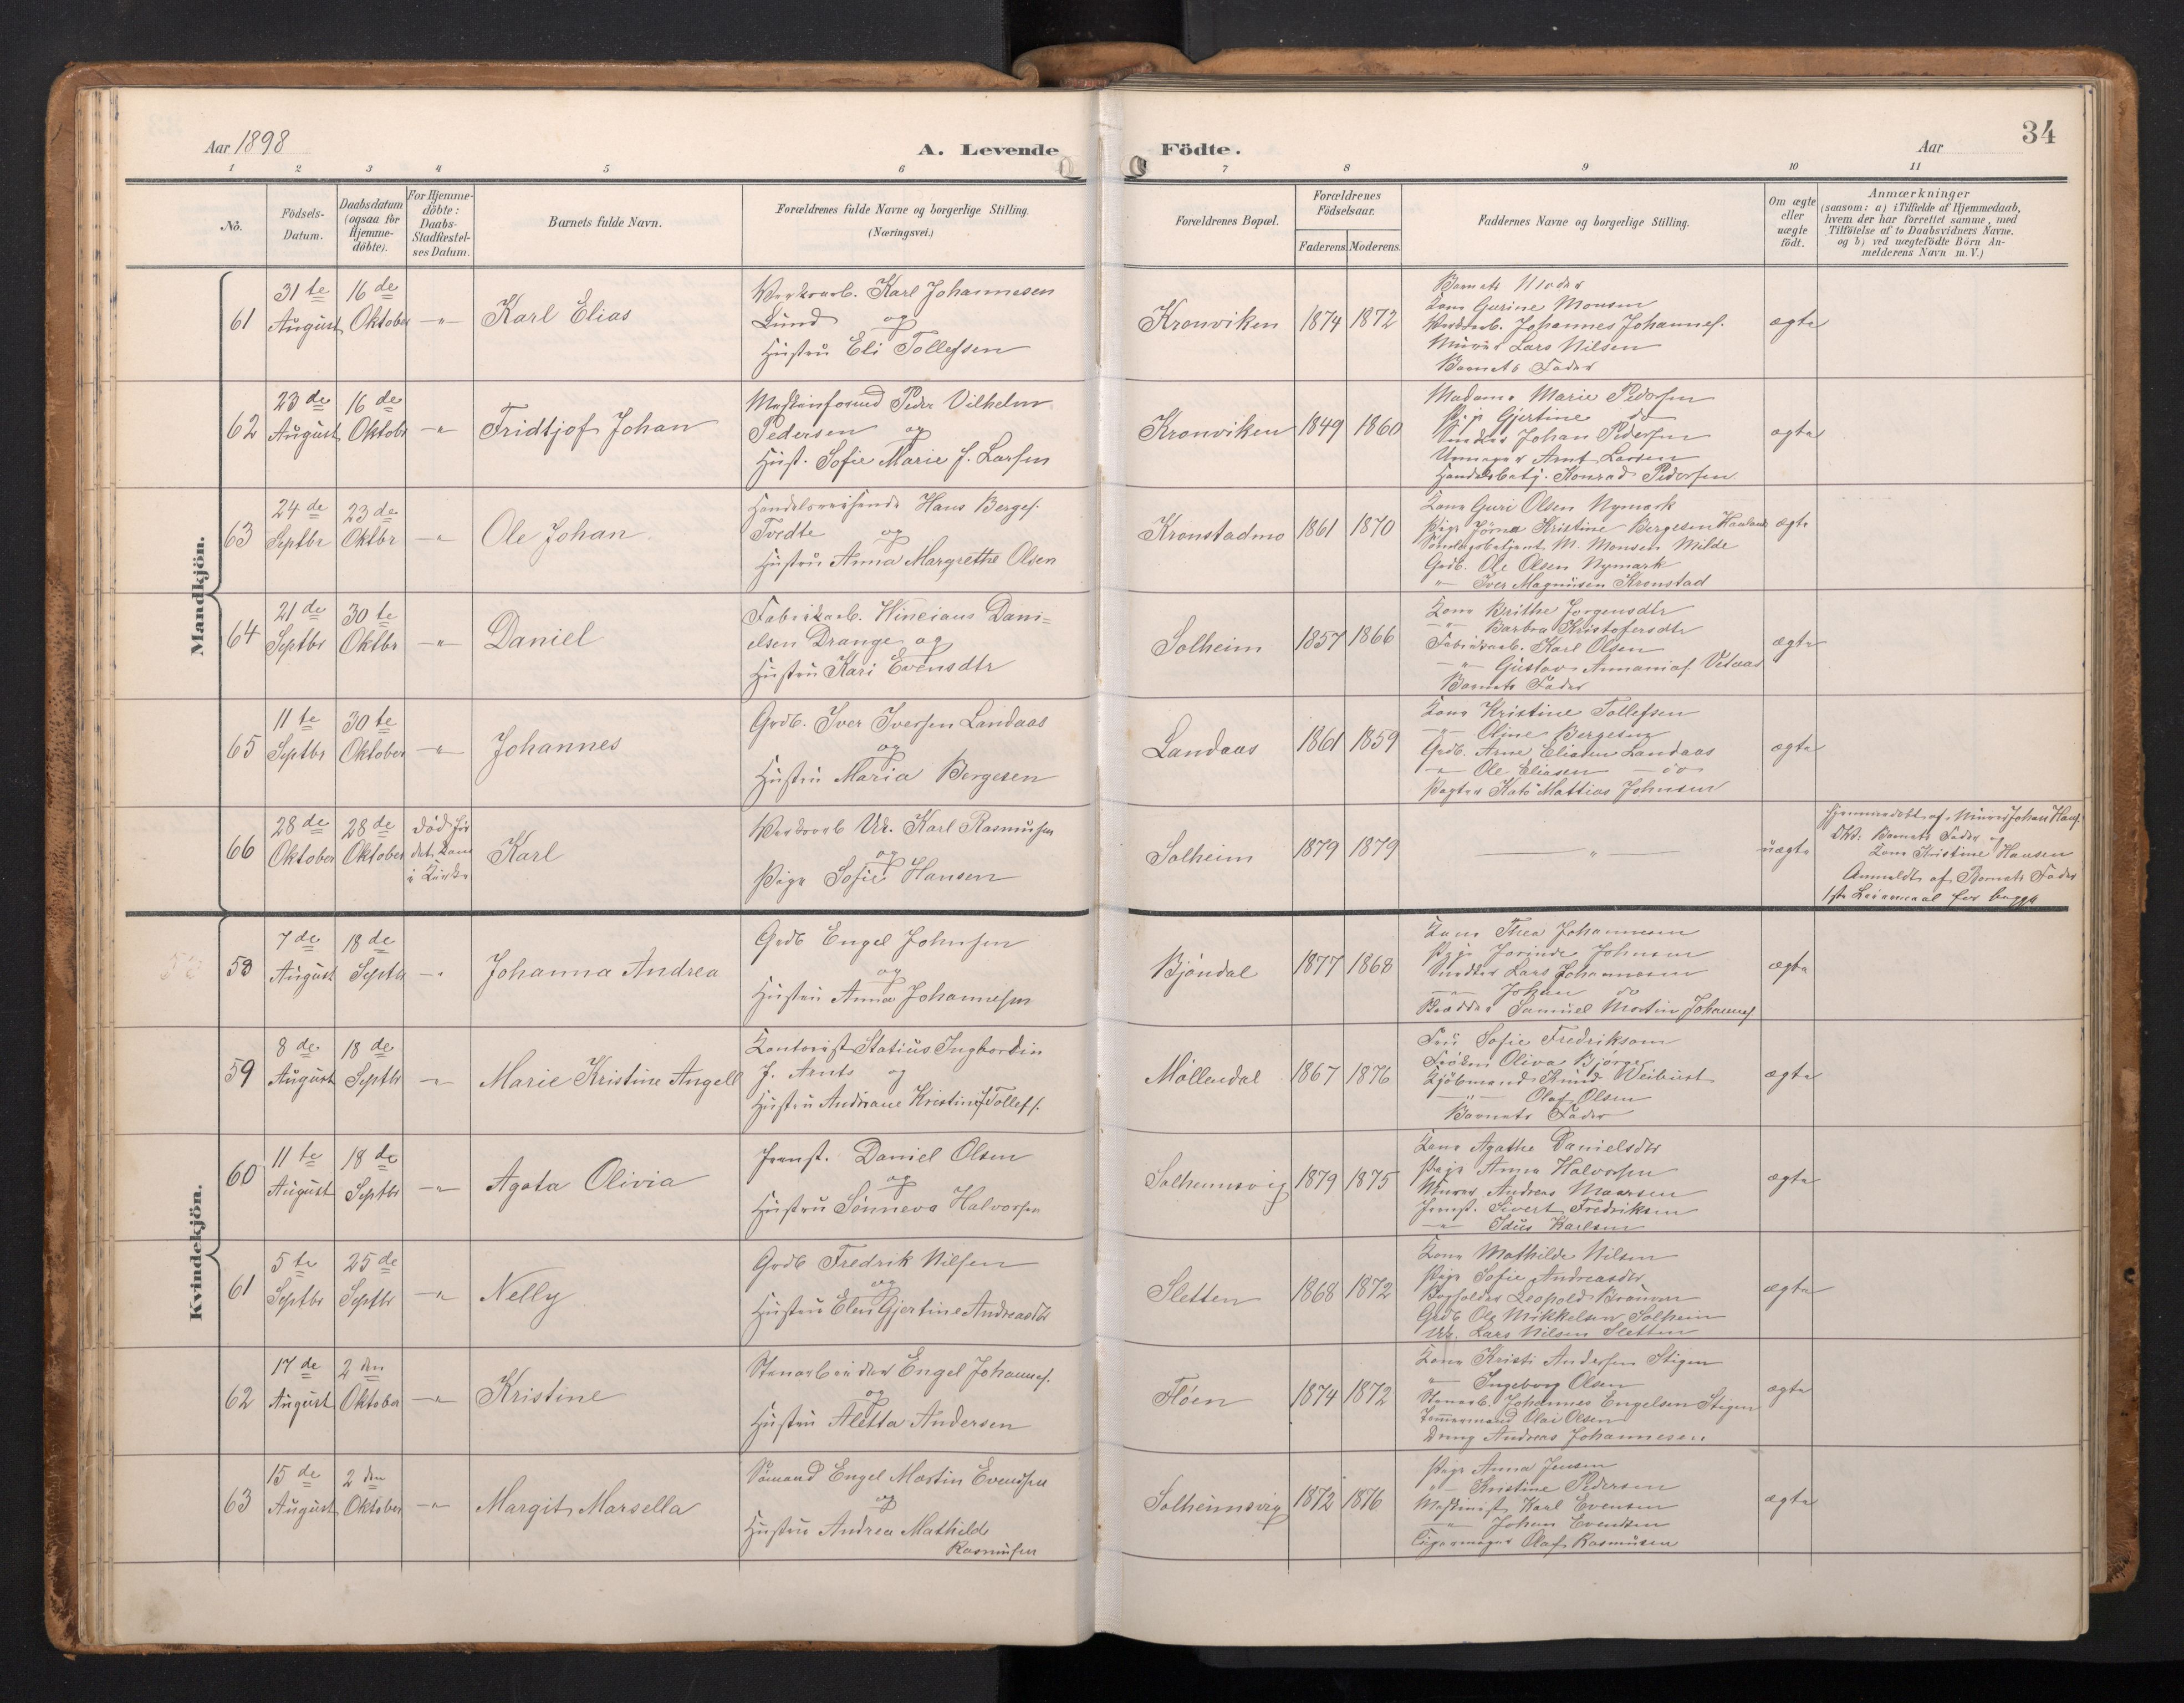 Aar 1898
A. Levende
Födte.
Aar
34
1 2 3 4 5 6 7 8 9 10 11
No.
Födsels-Datum.
Daabsdatum (ogsaa for Hjemme-döbte).
For Hjemme-döbte: Daabs-Stadfæstel-ses Datum.
Barnets fulde Navn.
Forældrenes fulde Navne og borgerlige Stilling. (Næringsvei.)
Forældrenes Bopæl.
Forældrenes Födselsaar.
Faderens. Moderens.
Faddernes Navne og borgerlige Stilling.
Om ægte eller uægte födt.
Anmærkninger
(saasom: a) i Tilfælde af Hjemmedaab, hvem der har forrettet samme, med Tilföielse af to Daabsvidners Navne. og b) ved uægtefödte Börn An-melderens Navn m. V.)
Mandkjön.
61 31te August 16de Oktober -"- Karl Elias
Karl Johannesen
Lund og
Hustru Eli Tollefsen
Kronviken 1874 1872
Barnets Moder
Kone Gurine Monsen
Johannes Johannes.
Murer Lars Nilsen
Barnets Fader
ægte
62 23de August 16de Oktobr -"- Fridtjof Johan
Peder Vilhelm
Pedersen og
Hust. Sofie Marie J. Larsen
Kronviken 1849 1860
Madame Marie Pedersen
Pige Gjertine do
Snedker Johan Pedersen
Arnt Larsen
Handelsbetj. Konrad Pedersen
ægte
63 24de Septbr 23de Oktbr -"- Ole Johan
Handelsreisende Hans Berges.
Tvedte og
Hustru Anna Margrethe Olsen
Kronstadmo 1861 1870
Kone Guri Olsen Nymark
Pige Kristine Bergesen
M. Monsen Milde
Grdb. Ole Olsen Nymark
-"- Iver Magnusen Kronstad
ægte
64 21de Septbr 30te Oktbr -"- Daniel
Fabrikarb. Dani=
elsen Drange og
Hustru Kari Evensdtr
Solheim 1857 1866
Kone Brithe Jorgensdtr
-"- Barbra Kristofersdtr
Fabrikarb. Karl Olsen
-"- Gustav
Barnets Fader
ægte
65 11te Septbr 30te Oktober -"- Johannes
Grdb. Iver Iversen Landaas
og
Hustru Maria Bergesen
Landaas 1861 1859
Kone Kristine Tollefsen
-"- Oline Bergesen
Grdb. Arne Eliasen Landaas
-"- Ole Eliasen do
Mattias Johnsen
ægte
66 28de Oktober 28de Oktober Död för det kom i Kirke Karl
Karl Rasmussen
og
Pige Sofie Hansen
Solheim 1879 1879
-"-
uægte
Hjemmedöbt af Murer Johan Hans.
Barnets Fader og
Kone Kristine Hansen
Anmeldt af Barnets Fader
1ste Leiermaal for begge
Kvindekjön.
58 7de August 18de Septbr -"- Johanna Andrea
Grdb Engel Johnsen
og
Hustru Anna Johannesen
Bjöndal 1877 1868
Kone Thea Johannesen
Pige Johnsen
Snedker Lars Johannesen
-"- Johan do
Samuel Martin Johannes.
ægte
59 8de August 18de Septbr -"- Marie Kristine Angell
Kontorist Statius Ingbordin
J. Arnts og
Hustru Andreane Kristine Tollefs.
Möllendal 1867 1876
Fru Sofie Fredriksen
Fröken Oliva Bjørge
Kjöbmand Knud Weibust
-"- Olaf Olsen
Barnets Fader
ægte
60 11te August 18de Septbr -"- Agata Olivia
Daniel Olsen
og
Hustru Sönneva Halvorsen
Solheimsvig 1879 1875
Kone Agathe Danielsdtr
Pige Anna Halvorsen
Murer Andreas
Sivert Fredriksen
-"- Karlsen
ægte
61 5te Septbr 25de Septbr -"- Nelly
Grdb Fredrik Nilsen
og
Hustru Elen Gjertine Andreasdtr
Sletten 1868 1872
Kone Mathilde Nilsen
Pige Sofie Andreasdtr
Bogholder Leopold
Grdb Ole Mikkelsen Solheim
Uk. Lars Nilsen Sletten
ægte
62 17de August 2den Oktober -"- Kristine
Stenarbeider Engel Johannes.
og
Hustru Aletta Andersen
Flöen 1874 1872
Kone Kristi Andersen Stigen
-"- Ingeborg Olsen
Stenarb. Johannes Engelsen Stigen
Tömmermand Olai Olsen
Dreng Andreas Johannesen
ægte
63 15de August 2den Oktober -"- Margit Marsella
Sömand Engel Martin Evensen
og
Hustru Andrea Mathilde
Rasmussen
Solheimsvig 1872 1876
Pige Anna Jensen
-"- Kristine Pedersen
Maskinist Karl Evensen
-"- Johan Evensen
Cigarmager Olaf Rasmusen
ægte